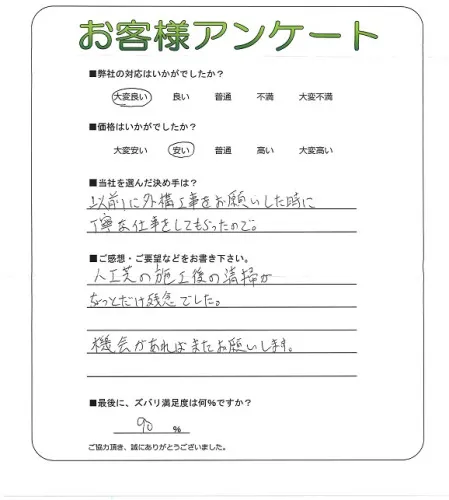 お客様アンケート
■弊社の対応はいかがでしたか？
大変良い 良い 普通 不満 大変不満
■価格はいかがでしたか？
大変安い 安い 普通 高い 大変高い
■当社を選んだ決め手は？
以前に外構工事をお願いした時に
丁寧な仕事をしてもらったので。
■ご感想・ご要望などをお書き下さい。
人工芝の施工後の清掃が
ちょっとだけ残念でした。
機会があればまたお願いします。
■最後に、ズバリ満足度は何%ですか？
90 %
ご協力頂き、誠にありがとうございました。